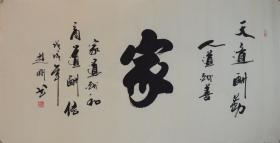 天道酬勤
人道酬善
家
家道酬和
商道酬信
戊戌年